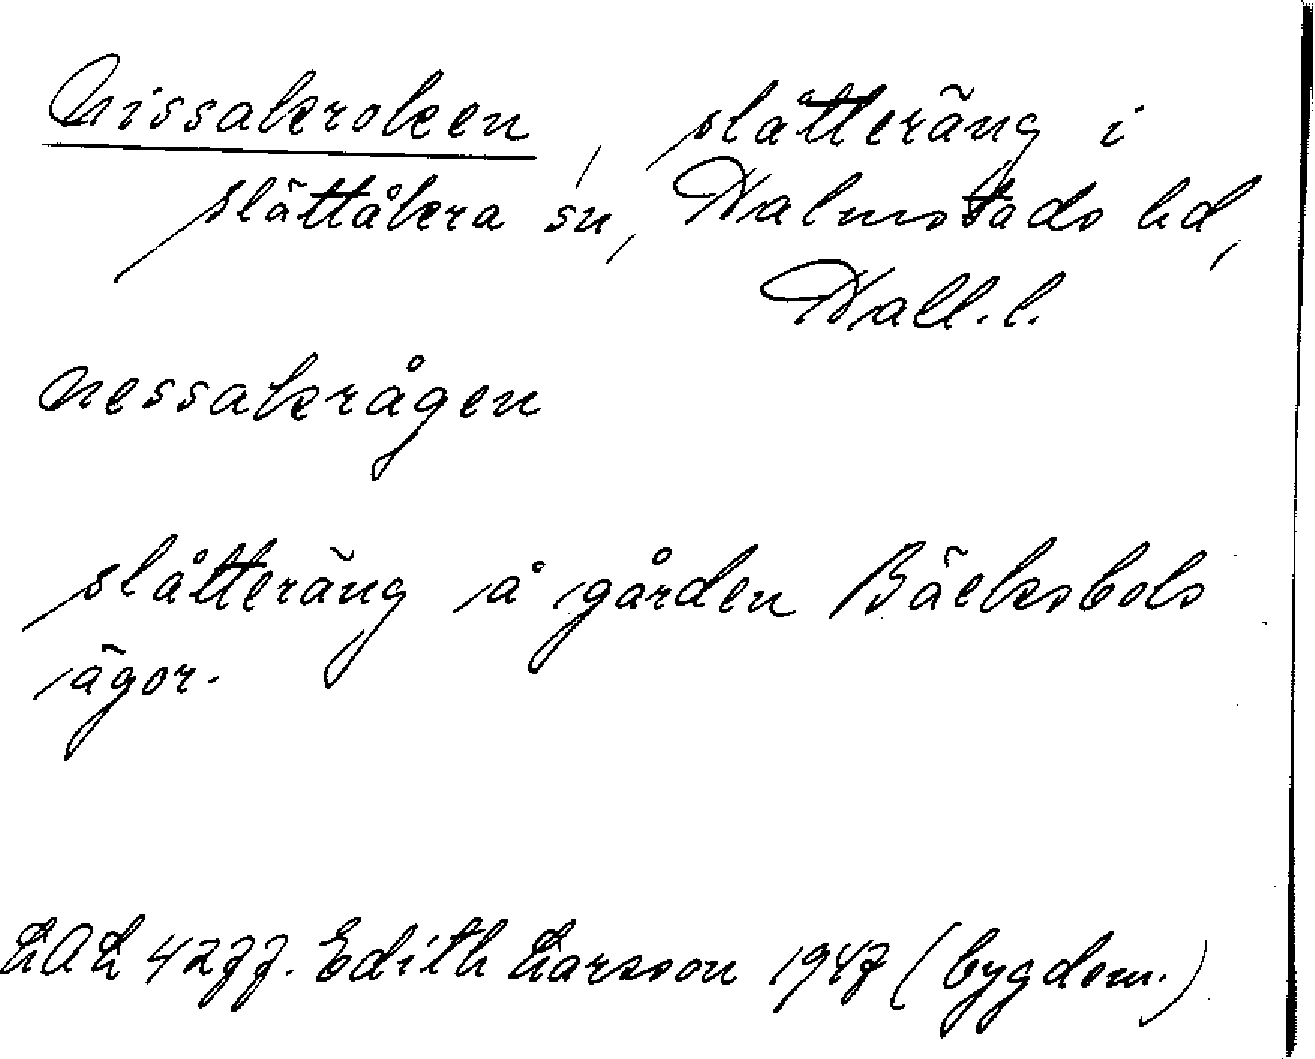 Nissakroken, slåtteräng i
Slättåkra sn, Halmstads hd,
Hall. l.
nessakrågen
slåtteräng å gården Bäcksbols
ägor.
LAL 4277. Edith Larsson 1947 (bygdem.)